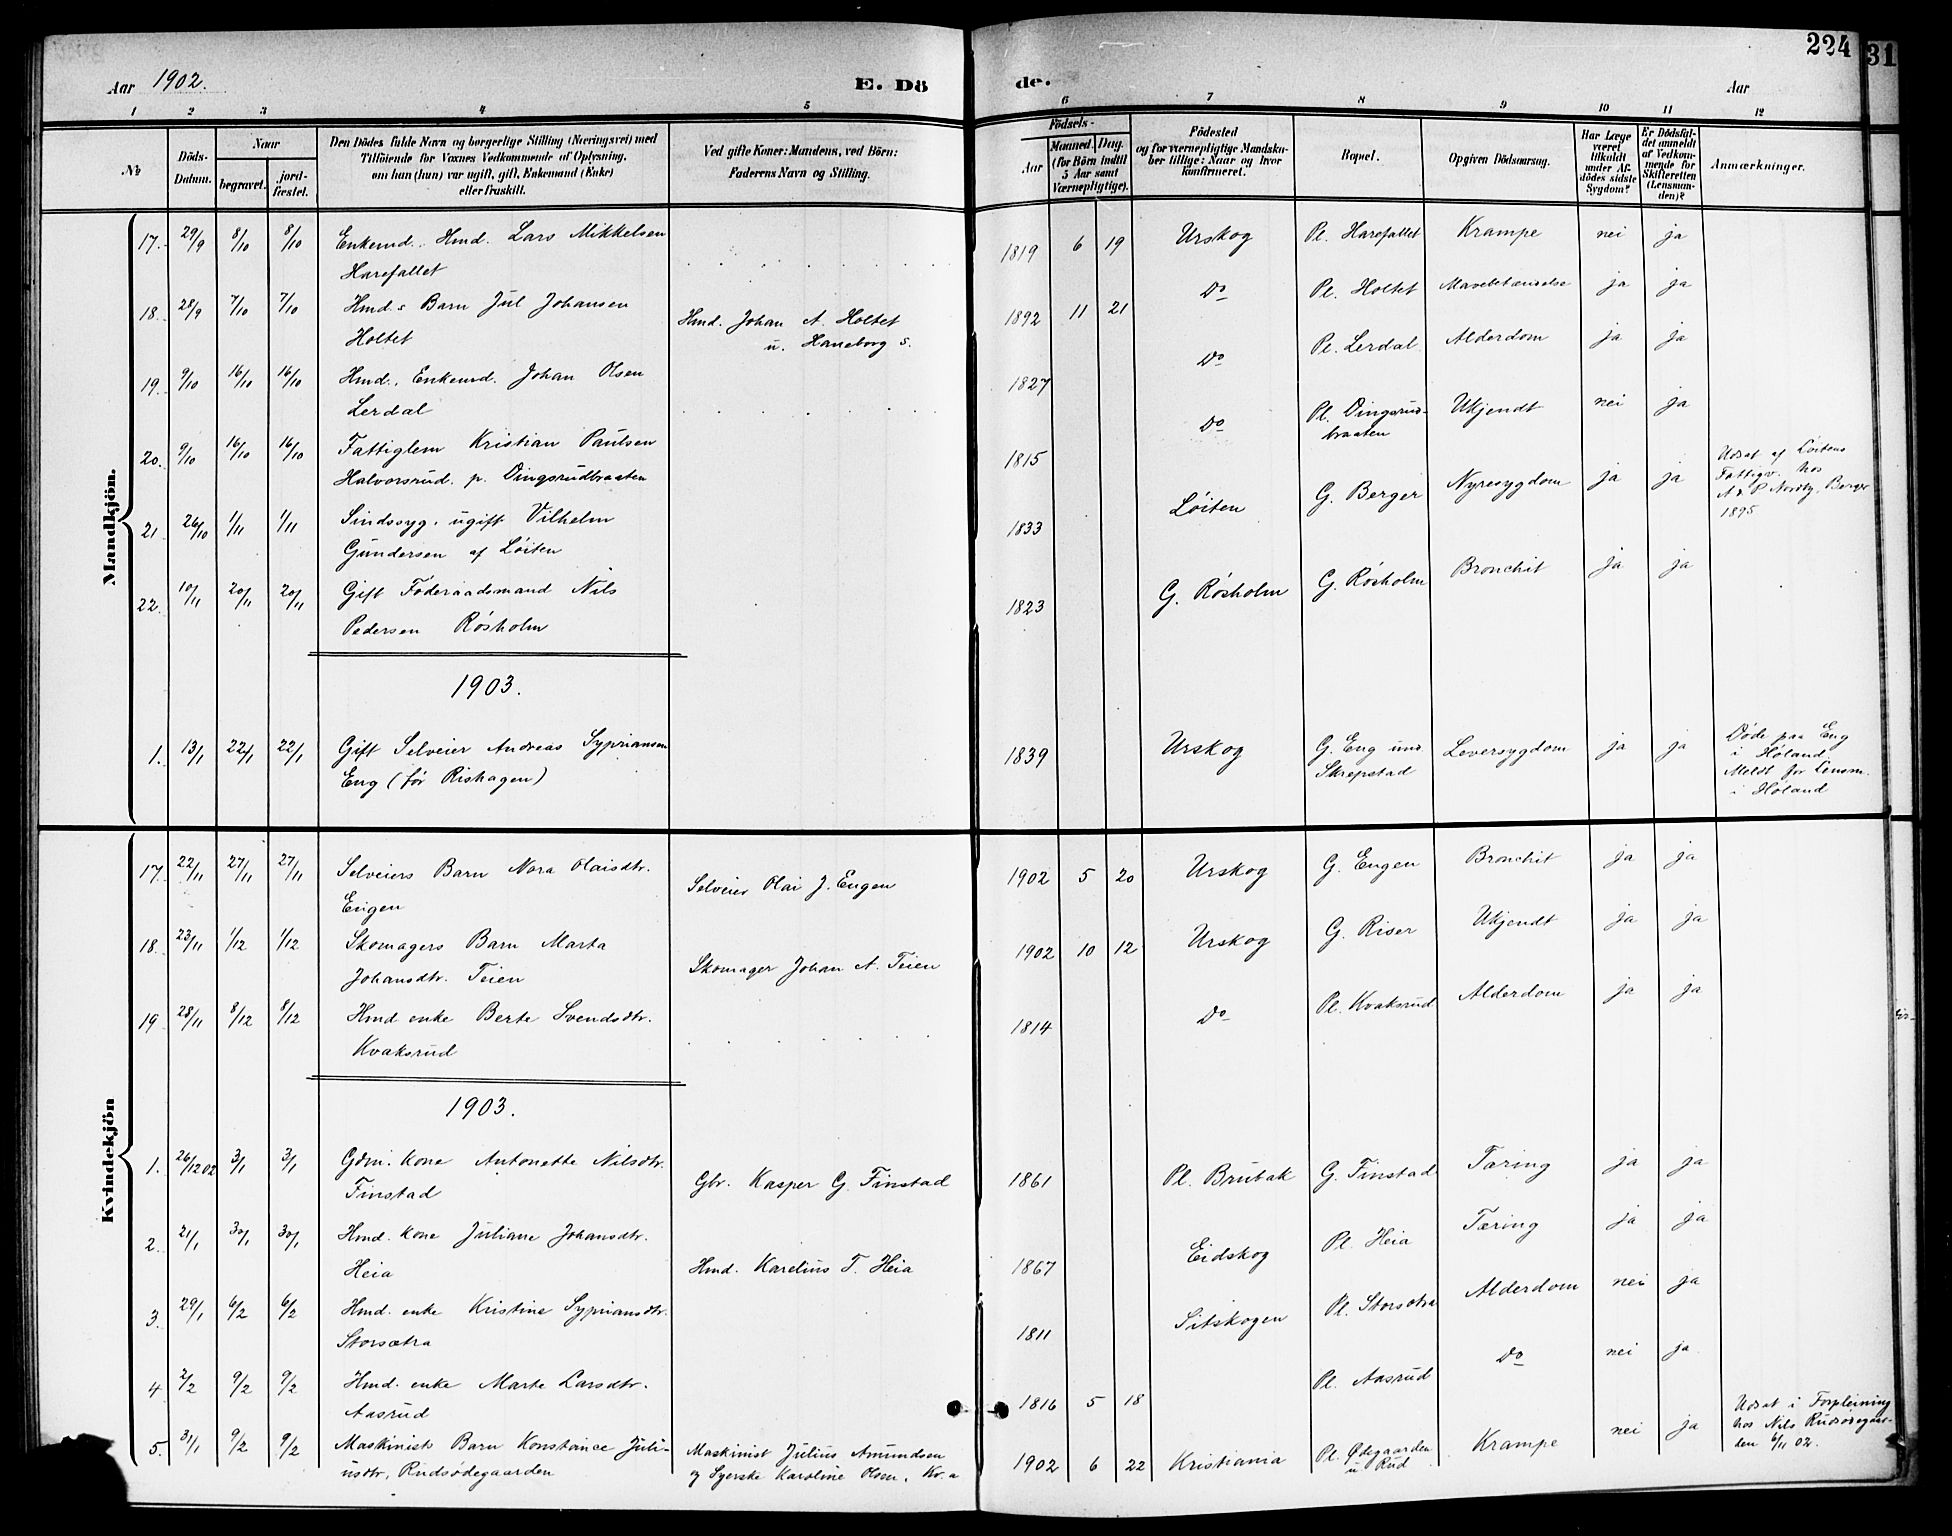 224
31
Aar 1902.
E. Dö
de.
Aar
1 2 3 4 5 6 7 8 9 10 11 12
No
Döds-Datum.
Naar
begravet.
jordfæstet.
Den Dödes fulde Navn og borgerlige Stilling (Næringsvei) med
Tilföiende for Voxnes Vedkommende af Oplysning,
om han (hun) var ugift, gift, Enkemand (Enke)
eller fraskilt.
Ved gifte Koner: Mandens, ved Börn:
Faderens Navn og Stilling.
Födsels-
Aar
Maaned. Dag.
(for Börn indtil
5 Aar samt
Værnepligtige).
Födested
og for værnepligtige Mandskaber tillige: Naar og hvor
konfirmeret.
Bopæl.
Opgiven Dödsaarsag.
Har Læge
været
tilkaldt
under Afdödes sidste
Sygdom?
Er Dödsfaldet anmeldt
af Vedkommende for
Skifteretten
(Lensmanden)?
Anmærkninger.
Mandkjön.
17. 29/9 8/10 8/10 Enkemd. Hmd. Lars Mikkelsen
Harefallet
1819 6 19 Urskog Pl. Harefallet Krampe nei ja
18. 28/9 7/10 7/10 Hmd.s Barn Jul Johansen
Holtet
Hmd. Johan A. Holtet
u. Haneborg s.
1892 11 21 Do Pl. Holtet Mavebetændelse ja ja
19. 9/10 16/10 16/10 Hmd., Enkemd. Johan Olsen
Lerdal
1827 Do Pl. Lerdal Alderdom ja ja
20. 9/10 16/10 16/10 Fattiglem Kristian Paulsen
Halvorsrud. p. Dingsrudbraaten
1815 Do Pl. Dingsrudbraaten Ukjendt nei ja
21 26/10 1/11 1/11 Sindssyg, ugift Vilhelm
Gundersen af Löiten
1833 Löiten G. Berger Nyresygdom ja ja
Udsat af Löitens
Fattigv. hos
A. P. Nordby, Berger
1895
22. 10/11 20/11 20/11 Gift Föderaadsmand Nils
Pedersen Rösholm
1823 G. Rösholm G. Rösholm Bronchit ja ja
1903.
1. 13/1 22/1 22/1 Gift Selveier Andreas Sypriansen
Eng (för Rishagen)
1839 Urskog G. Eng und.
Skrepstad Leversygdom ja ja
Döde paa Eng
i Höland.
Meldt for Lensm.
i Höland
Kvindekjön
17. 22/11 27/11 27/11 Selveiers Barn Nora Olaisdtr.
Engen
Selveier Olai J. Engen
1902 5 20 Urskog G. Engen Bronchit ja ja
18. 23/11 1/12 1/12 Skomagers Barn Marta
Johansdtr. Teien
Skomager Johan A. Teien
1902 10 12 Urskog G. Riser Ukjendt ja ja
19 28/11 8/12 8/12 Hmd. enke Berte Svendsdtr.
Kvaksrud
1814 Do Pl. Kvaksrud Alderdom ja ja
1903.
1. 26/12 02 3/1 3/1 Gdm. kone Antonette Nilsdtr.
Finstad
Gbr. Kasper G. Finstad
1861 Pl. Brubak G. Finstad Tæring ja ja
2. 21/1 30/1 30/1 Hmd. kone Juliane Johansdtr.
Heia
Hmd. Karelius T. Heia
1867 Eidskog Pl. Heia Tæring ja ja
3. 29/1 6/2 6/2 Hmd. enke Kristine Sypriansdtr.
Storsætra
1811 Sitskogen Pl. Storsætra Alderdom nei ja
4 2/2 9/2 9/2 Hmd. enke Marte Larsdtr.
Aasrud
1816 5 18 Pl. Aasrud Do nei ja
5. 31/1 9/2 9/2 Maskinists Barn Konstance Juliusdtr, Rudsödegaarden
Maskinist Julius Amundsen
og Syerske Karoline Olsen, Kr.a
1902 6 22 Kristiania Pl. Ödegaarden
u. Rud Krampe nei ja
Udsat i Forpleining
hos Nils Rudsödegaarden 6/11 02.